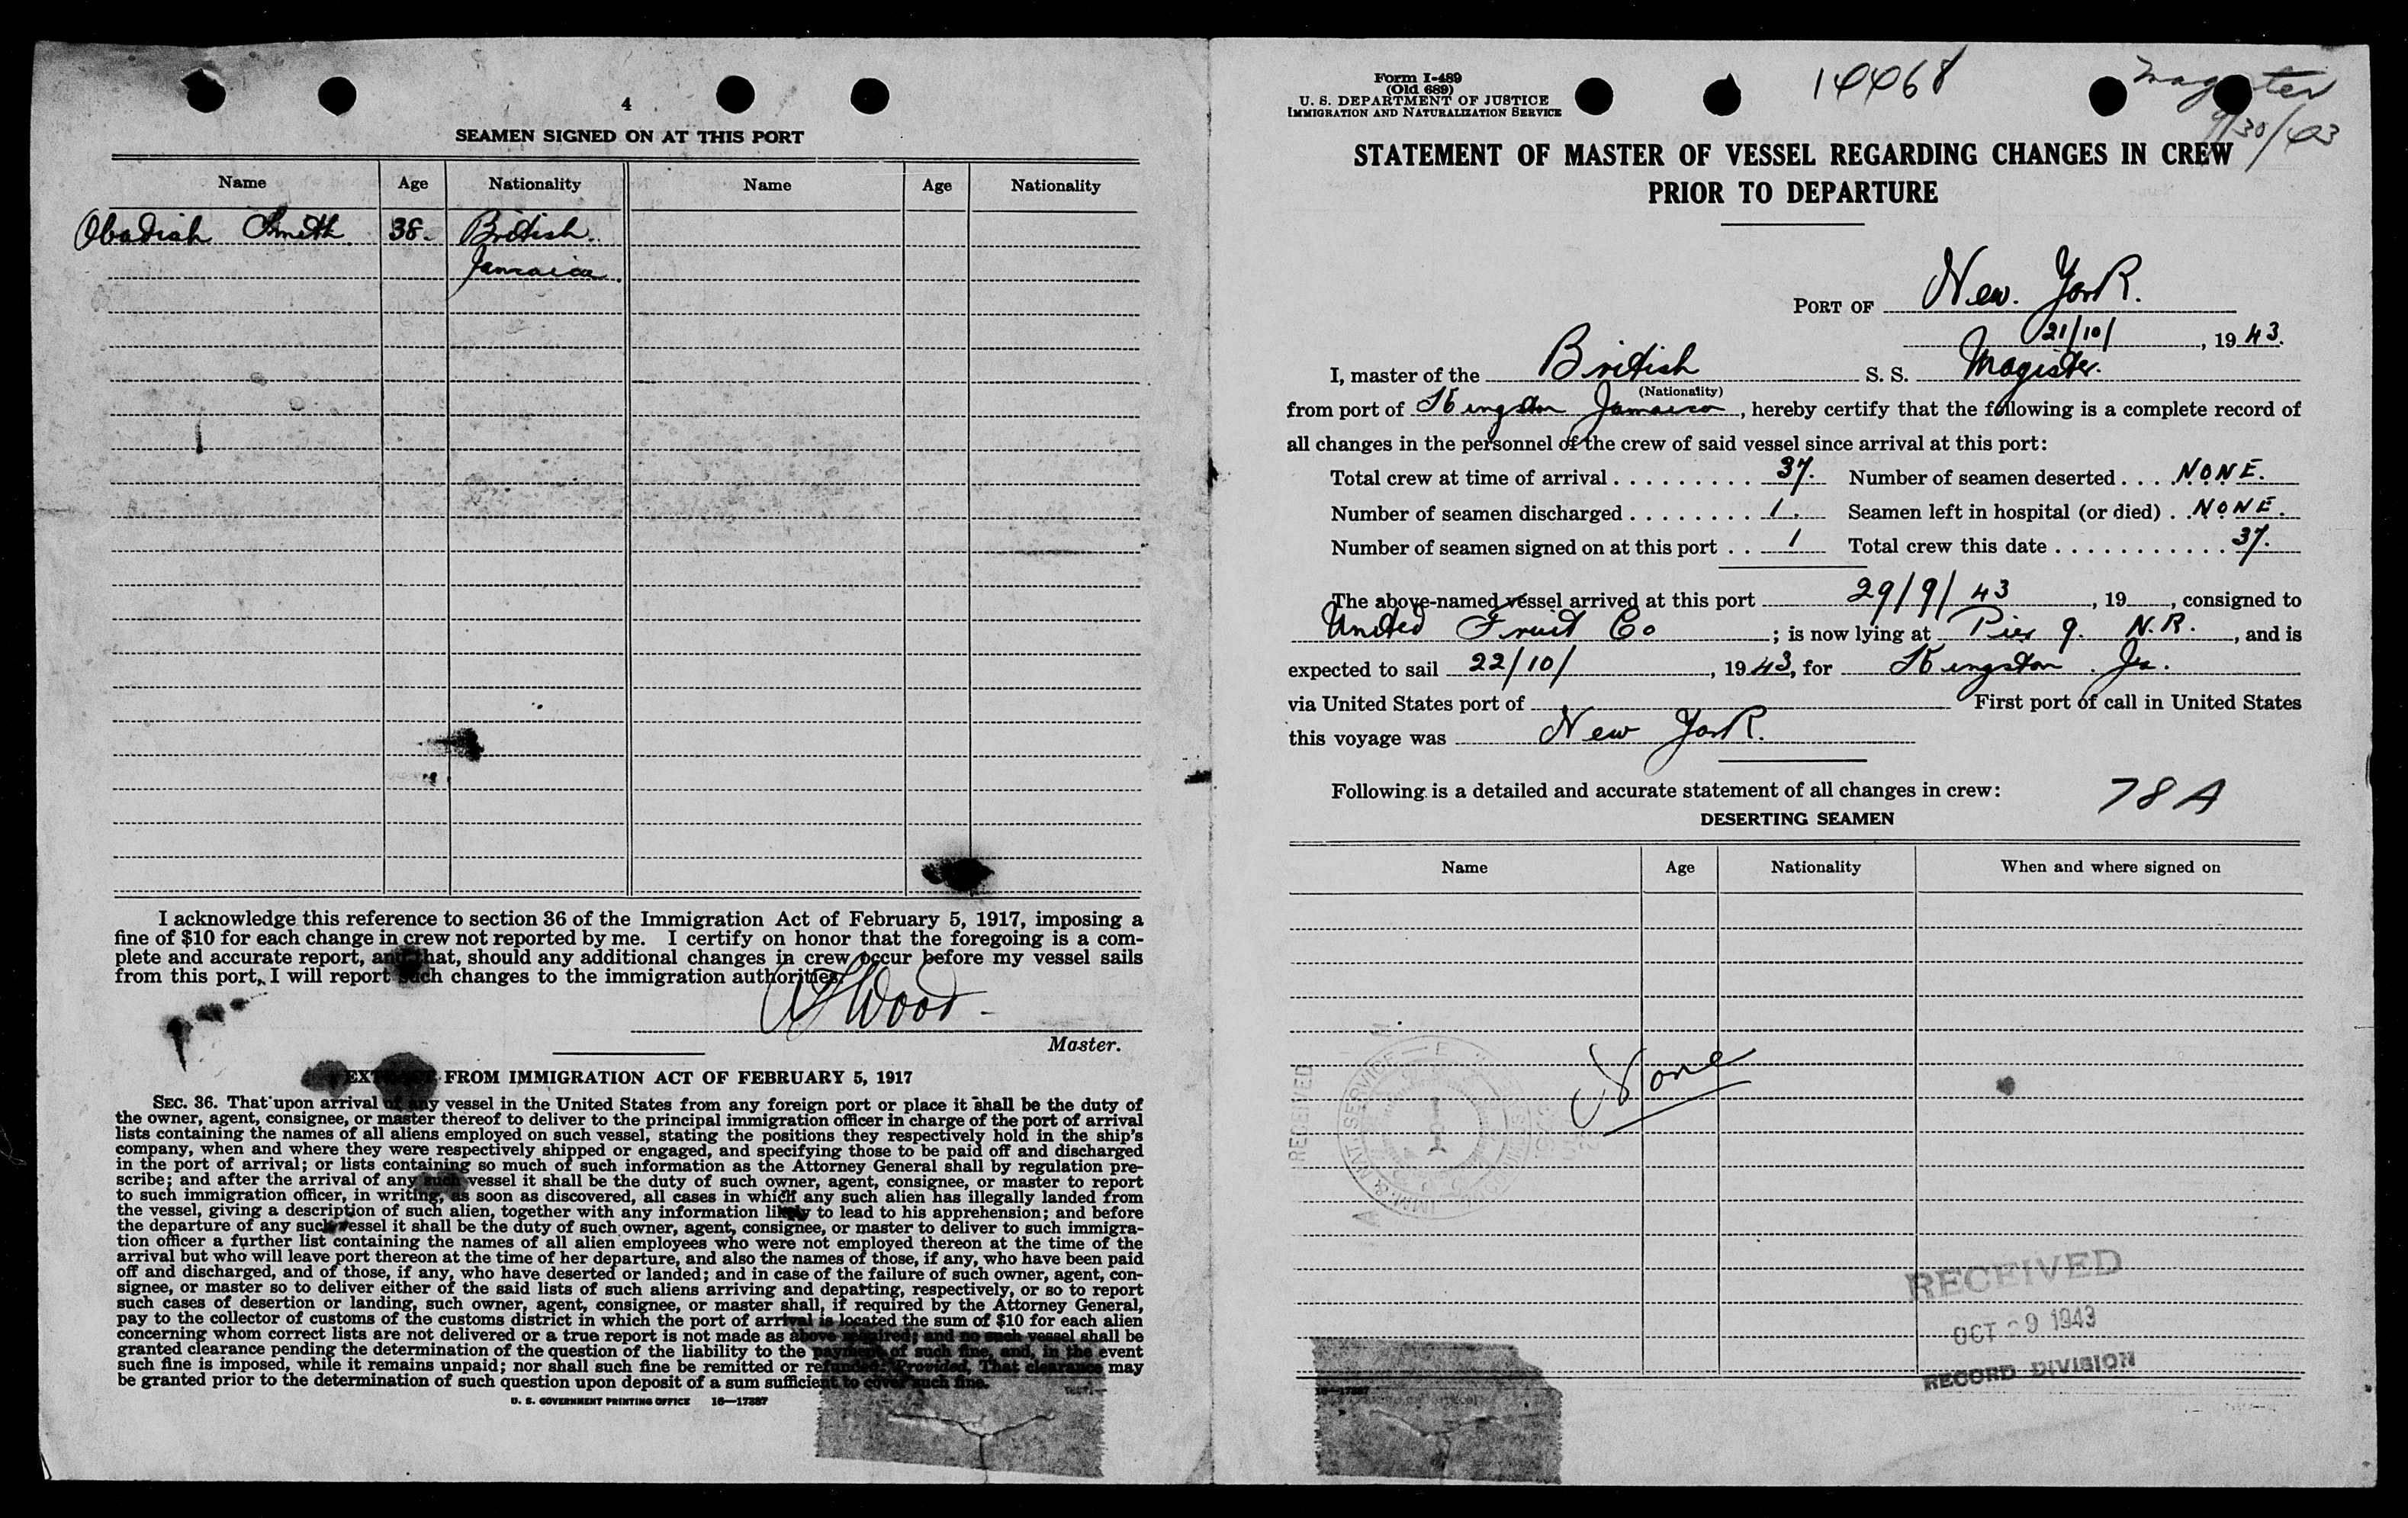 4
SEAMEN SIGNED ON AT THIS PORT
Name Age Nationality Name Age Nationality
Obadiah Smith 38. British.
Jamaica.
I acknowledge this reference to section 36 of the Immigration Act of February 5, 1917, imposing a
fine of $10 for each change in crew not reported by me. I certify on honor that the foregoing is a com-
plete and accurate report, and that, should any additional changes in crew occur before my vessel sails
from this port, I will report such changes to the immigration authorities.
Wood
Master.
EXTRACT FROM IMMIGRATION ACT OF FEBRUARY 5, 1917
SEC. 36. That upon arrival of any vessel in the United States from any foreign port or place it shall be the duty of
the owner, agent, consignee, or master thereof to deliver to the principal immigration officer in charge of the port of arrival
lists containing the names of all aliens employed on such vessel, stating the positions they respectively hold in the ship's
company, when and where they were respectively shipped or engaged, and specifying those to be paid off and discharged
in the port of arrival; or lists containing so much of such information as the Attorney General shall by regulation pre-
scribe; and after the arrival of any such vessel it shall be the duty of such owner, agent, consignee, or master to report
to such immigration officer, in writing, as soon as discovered, all cases in which any such alien has illegally landed from
the vessel, giving a description of such alien, together with any information likely to lead to his apprehension; and before
the departure of any such vessel it shall be the duty of such owner, agent, consignee, or master to deliver to such immigra-
tion officer a further list containing the names of all alien employees who were not employed thereon at the time of the
arrival but who will leave port thereon at the time of her departure, and also the names of those, if any, who have been paid
off and discharged, and of those, if any, who have deserted or landed; and in case of the failure of such owner, agent, con-
signee, or master so to deliver either of the said lists of such aliens arriving and departing, respectively, or so to report
such cases of desertion or landing, such owner, agent, consignee, or master shall, if required by the Attorney General,
pay to the collector of customs of the customs district in which the port of arrival is located the sum of $10 for each alien
concerning whom correct lists are not delivered or a true report is not made as above required; and no such vessel shall be
granted clearance pending the determination of the question of the liability to the payment of such fine, and, in the event
such fine is imposed, while it remains unpaid; nor shall such fine be remitted or refunded: Provided, That clearance may
be granted prior to the determination of such question upon deposit of a sum sufficient to cover such fine.
U. S. GOVERNMENT PRINTING OFFICE 16—17387
Form I-489
(Old 689)
U. S. DEPARTMENT OF JUSTICE
IMMIGRATION AND NATURALIZATION SERVICE
14468
Magister
9/30/43
STATEMENT OF MASTER OF VESSEL REGARDING CHANGES IN CREW
PRIOR TO DEPARTURE
PORT OF New. York.
21/10/, 1943.
I, master of the British S. S. Magister.
(Nationality)
from port of Kingston Jamaica, hereby certify that the following is a complete record of
all changes in the personnel of the crew of said vessel since arrival at this port:
Total crew at time of arrival 37. Number of seamen deserted NONE.
Number of seamen discharged 1. Seamen left in hospital (or died) NONE.
Number of seamen signed on at this port 1 Total crew this date 37.
The above-named vessel arrived at this port 29/9/43, 19, consigned to
United Fruit Co; is now lying at Pier 9. N.R., and is
expected to sail 22/10/, 1943, for Kingston. Ja.
via United States port of First port of call in United States
this voyage was New York.
Following is a detailed and accurate statement of all changes in crew:
78A
DESERTING SEAMEN
Name Age Nationality When and where signed on
None
RECEIVED
RECEIVED
OCT 29 1943
RECORD DIVISION
16—17387